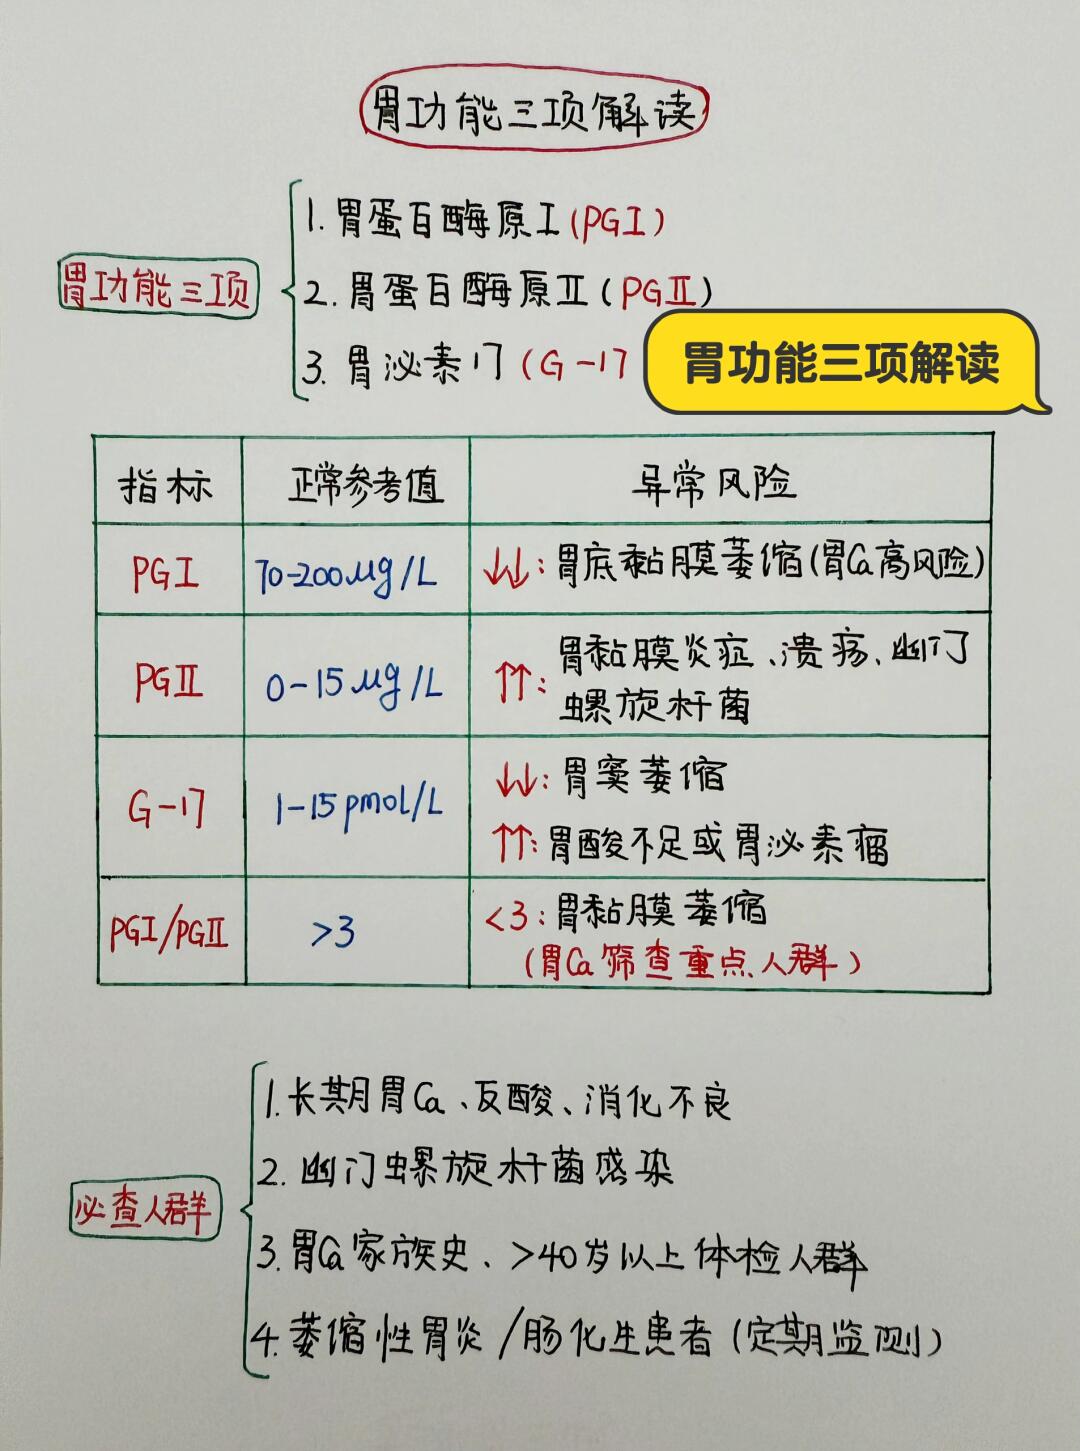 胃功能三项解读
胃功能三项
1. 胃蛋白酶原I(PGI)
2. 胃蛋白酶原II(PGII)
3. 胃泌素17(G-17
胃功能三项解读
指标 正常参考值 异常风险
PGI 70-200μg/L ↓↓:胃底黏膜萎缩(胃Ca高风险)
PGII 0-15μg/L ↑↑:胃黏膜炎症、溃疡、幽门
螺旋杆菌
G-17 1-15pmol/L ↓↓:胃窦萎缩
↑↑:胃酸不足或胃泌素瘤
PGI/PGII >3 <3:胃黏膜萎缩
(胃Ca筛查重点人群)
必查人群
1.长期胃Ca、反酸、消化不良
2.幽门螺旋杆菌感染
3.胃Ca家族史、>40岁以上体检人群
4.萎缩性胃炎/肠化生患者(定期监测)